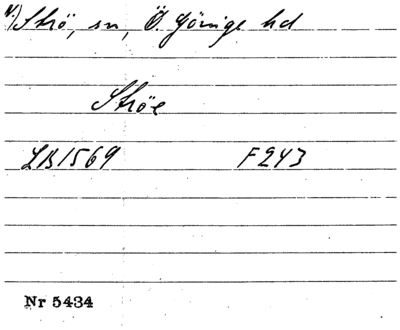 V.) Strö, sn, Ö. Göinge hd
Ströe
LB1569 F243
Nr 5434